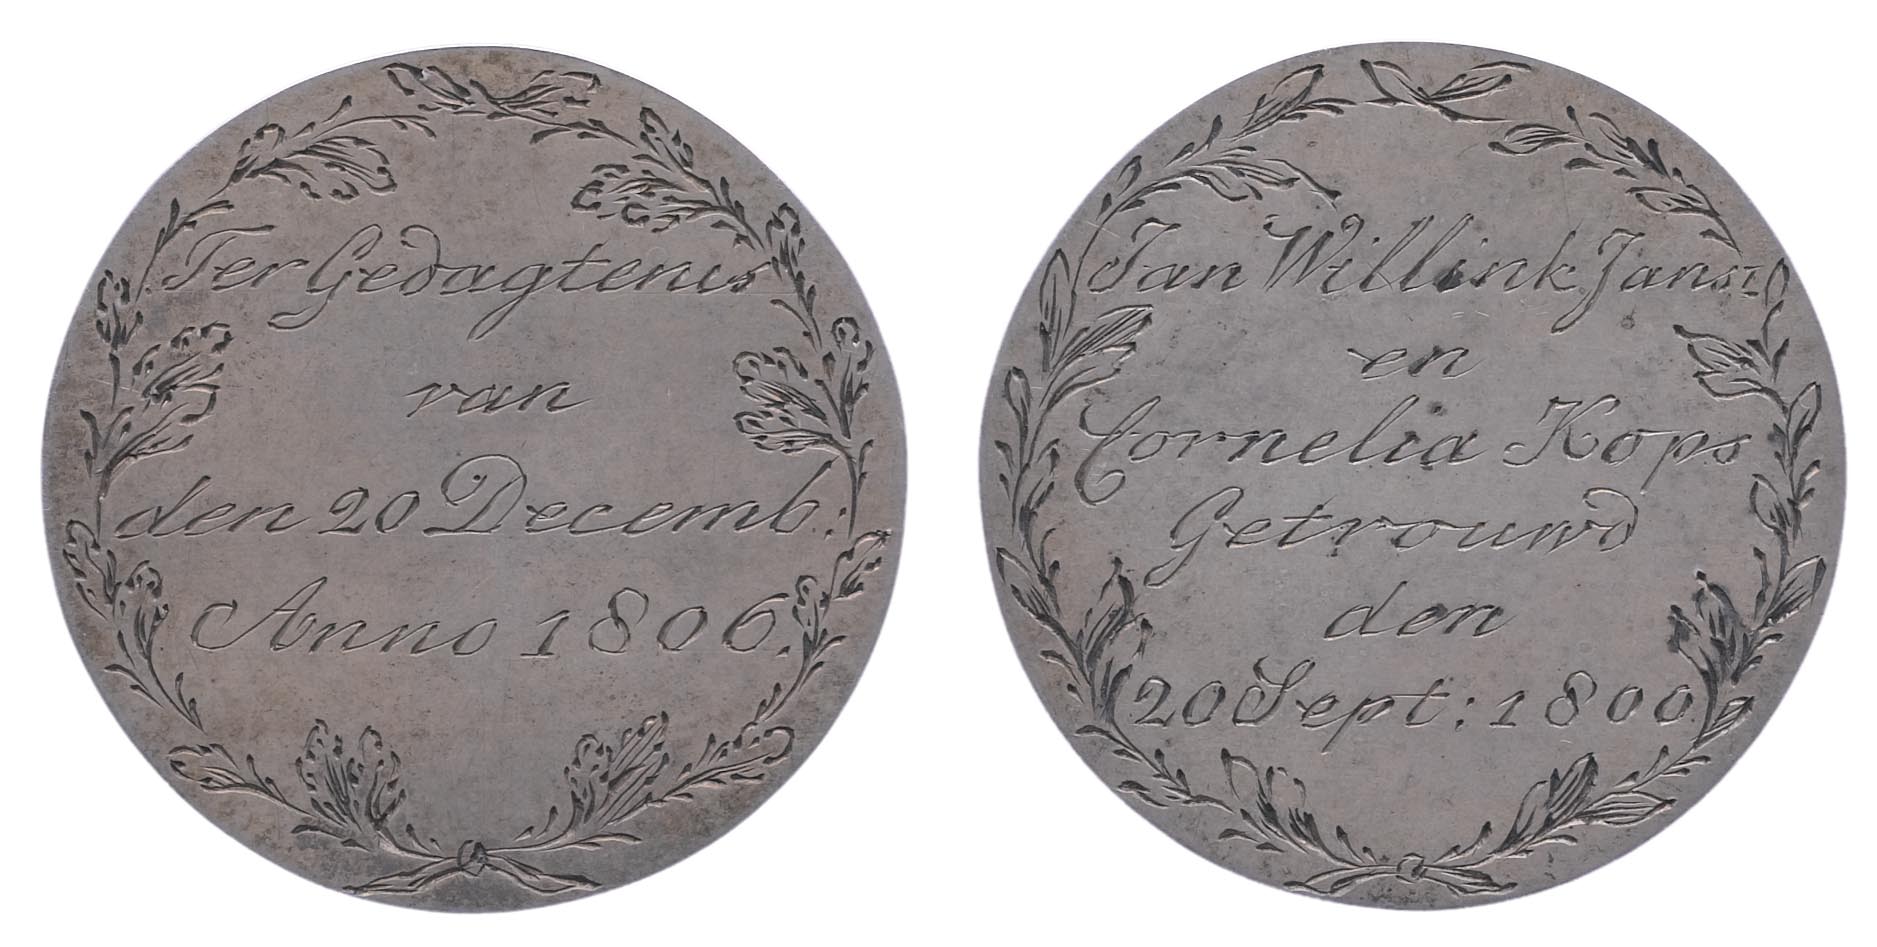 Ter Gedagtenis
van
den 20 Decemb:
Anno 1806.
Jan Willink Jansz
en
Cornelia Kops
Getrouwd
den
20 Sept: 1800